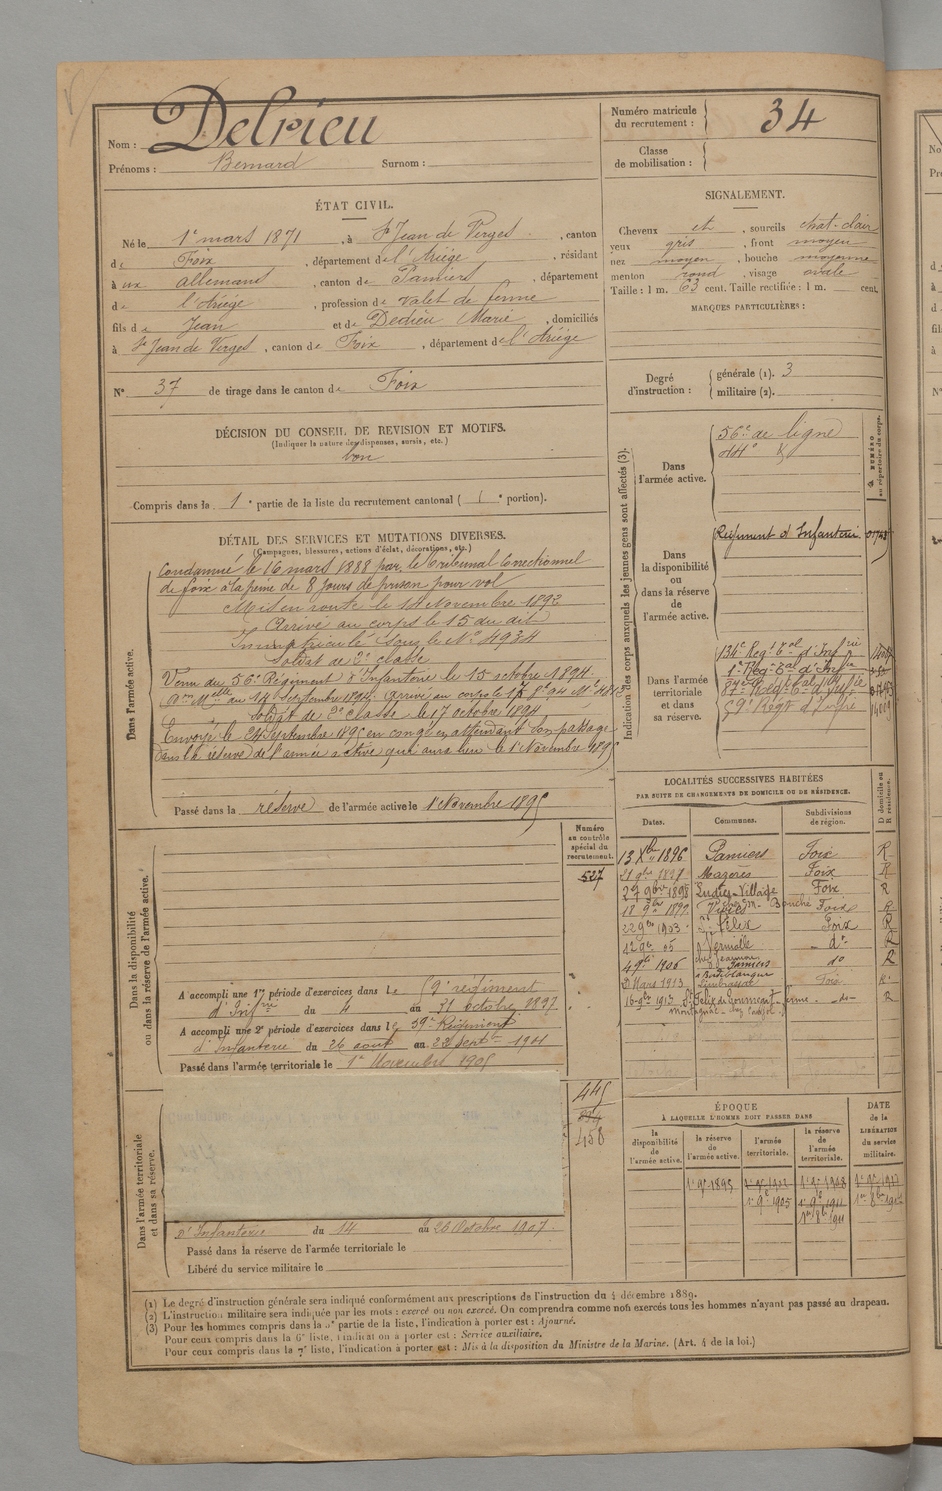 Nom : Delrieu
Prénoms : Bernard Surnom :
Numéro matricule du recrutement : 34
Classe de mobilisation :
ÉTAT CIVIL.
Né le 1er mars 1871, à St Jean de Verges, canton
de Foix, département de l'Ariége, résidant
à aux allemans, canton de Pamiers, département
de l'Ariége, profession de Valet de ferme
fils de Jean et de Dedieu Marie, domiciliés
à St Jean de Verges, canton de Foix, département de l'Ariége
N° 37 de tirage dans le canton de Foix
SIGNALEMENT.
Cheveux et, sourcils chat-clair
yeux gris, front moyen
nez moyen, bouche moyenne
menton rond, visage ovale
Taille : 1 m. 63 cent. Taille rectifiée : 1 m. cent.
MARQUES PARTICULIÈRES :
Degré d'instruction : générale (1). 3
militaire (2).
DÉCISION DU CONSEIL DE REVISION ET MOTIFS.
(Indiquer la nature des dispenses, sursis, etc.)
bon
Compris dans la 1e partie de la liste du recrutement cantonal ( 1e portion).
DÉTAIL DES SERVICES ET MUTATIONS DIVERSES.
(Campagnes, blessures, actions d'éclat, décorations, etc.)
Dans l'armée active.
Condamné le 16 mars 1888 par le Tribunal Correctionnel
de foix à la peine de 8 jours de prison pour vol
Mis en route le 14 Novembre 1892
Arrivé au corps le 15 du dit
Immatriculé sous le N° 4934
Soldat de 2e classe
Venu du 56e Régiment d'Infanterie le 15 octobre 1894
soldat de 2e classe le 17 octobre 1894
Envoyé le 24 Septembre 1895 en congé en attendant son passage
dans la réserve de l'armée active qui aura lieu le 1er Novembre 1895
Passé dans la réserve de l'armée active le 1er Novembre 1895
Indication des corps auxquels les jeunes gens sont affectés (3).
NUMÉRO au répertoire du corps.
Dans l'armée active.
56e de ligne
44e
Dans la disponibilité ou dans la réserve de l'armée active.
Régiment d'Infanterie
Dans l'armée territoriale et dans sa réserve.
134e Regt Tal d'Infrie
1er Reg Tal d'Infie
87e Regt Tal d'Infie
59e Regt d'Infie
LOCALITÉS SUCCESSIVES HABITÉES
PAR SUITE DE CHANGEMENTS DE DOMICILE OU DE RÉSIDENCE.
Dates. Communes. Subdivisions de région. D domicile ou R résidence.
13 Xbre 1896 Pamiers Foix R
Mazères Foix R
27 9bre 1898 Ludiès-Village Foix R
Foix R
22 9bre 1903 St Félix Foix R
12 9bre 05 Verniolle do R
Pamiers do R
Mars 1913 Foix R
1913 St Felix de do R
Numéro au contrôle spécial du recrutement.
527
Dans la disponibilité ou dans la réserve de l'armée active.
A accompli une 1re période d'exercices dans le régiment
d'Infrie du 4 au 31 octobre 1897
A accompli une 2e période d'exercices dans le 59e Régiment
d'Infanterie du 26 août au 22 Septe 1901
Passé dans l'armée territoriale le 1er Novembre 1905
445
458
Dans l'armée territoriale et dans sa réserve.
d'Infanterie du 14 au 26 Octobre 1907
Passé dans la réserve de l'armée territoriale le
Libéré du service militaire le
ÉPOQUE
À LAQUELLE L'HOMME DOIT PASSER DANS
la disponibilité de l'armée active. la réserve de l'armée active. l'armée territoriale. la réserve de l'armée territoriale.
DATE de la LIBÉRATION du service militaire.
1er 9e 1895
1er 9e 1905 1er 9e 1911
(1) Le degré d'instruction générale sera indiqué conformément aux prescriptions de l'instruction du 4 décembre 1889.
(2) L'instruction militaire sera indiquée par les mots : exercé ou non exercé. On comprendra comme non exercés tous les hommes n'ayant pas passé au drapeau.
(3) Pour les hommes compris dans la 5e partie de la liste, l'indication à porter est : Ajourné.
Pour ceux compris dans la 6e liste, l'indication à porter est : Service auxiliaire.
Pour ceux compris dans la 7e liste, l'indication à porter est : Mis à la disposition du Ministre de la Marine. (Art. 4 de la loi.)